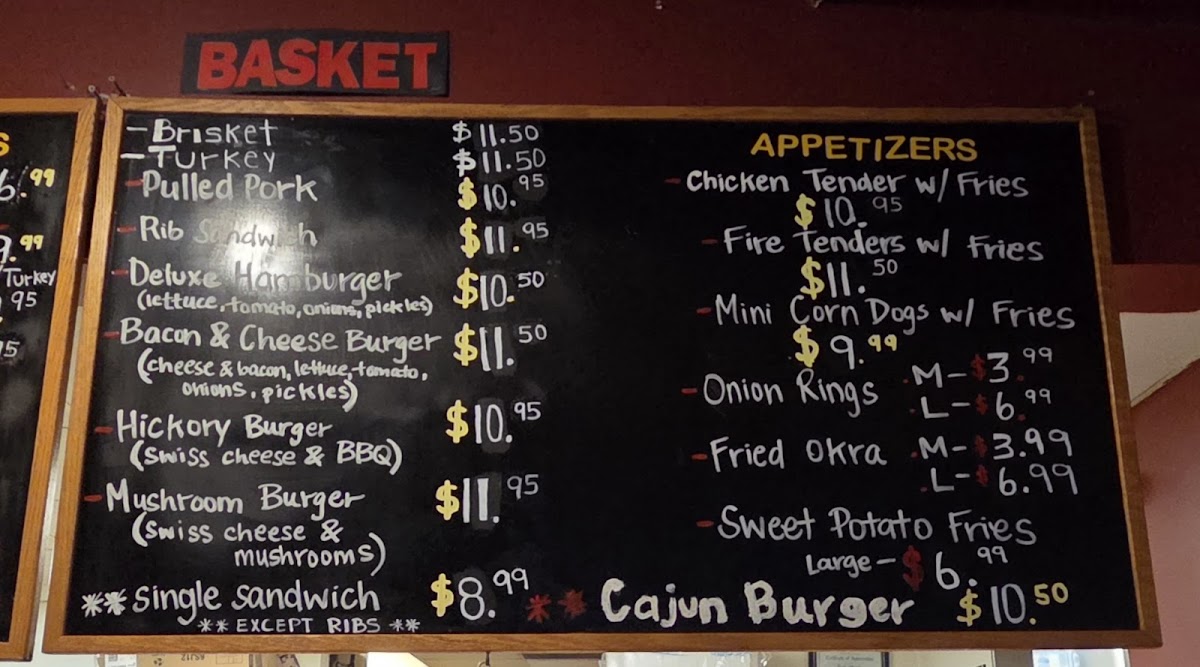 BASKET
- Brisket $11.50
- Turkey $11.50
- Pulled Pork $10.95
- Rib Sandwich $11.95
- Deluxe Hamburger $10.50
(lettuce, tomato, onions, pickles)
- Bacon & Cheese Burger $11.50
(cheese & bacon, lettuce, tomato,
onions, pickles)
- Hickory Burger $10.95
(Swiss cheese & BBQ)
- Mushroom Burger $11.95
(Swiss cheese &
mushrooms)
** Single Sandwich $8.99
** EXCEPT RIBS **
APPETIZERS
- Chicken Tender w/ Fries
$10.95
- Fire Tenders w/ Fries
$11.50
- Mini Corn Dogs w/ Fries
$9.99
- Onion Rings M- $3.99
L- $6.99
- Fried Okra M- $3.99
L- $6.99
- Sweet Potato Fries
Large- $6.99
** Cajun Burger $10.50
6.99
9.99
Turkey
95